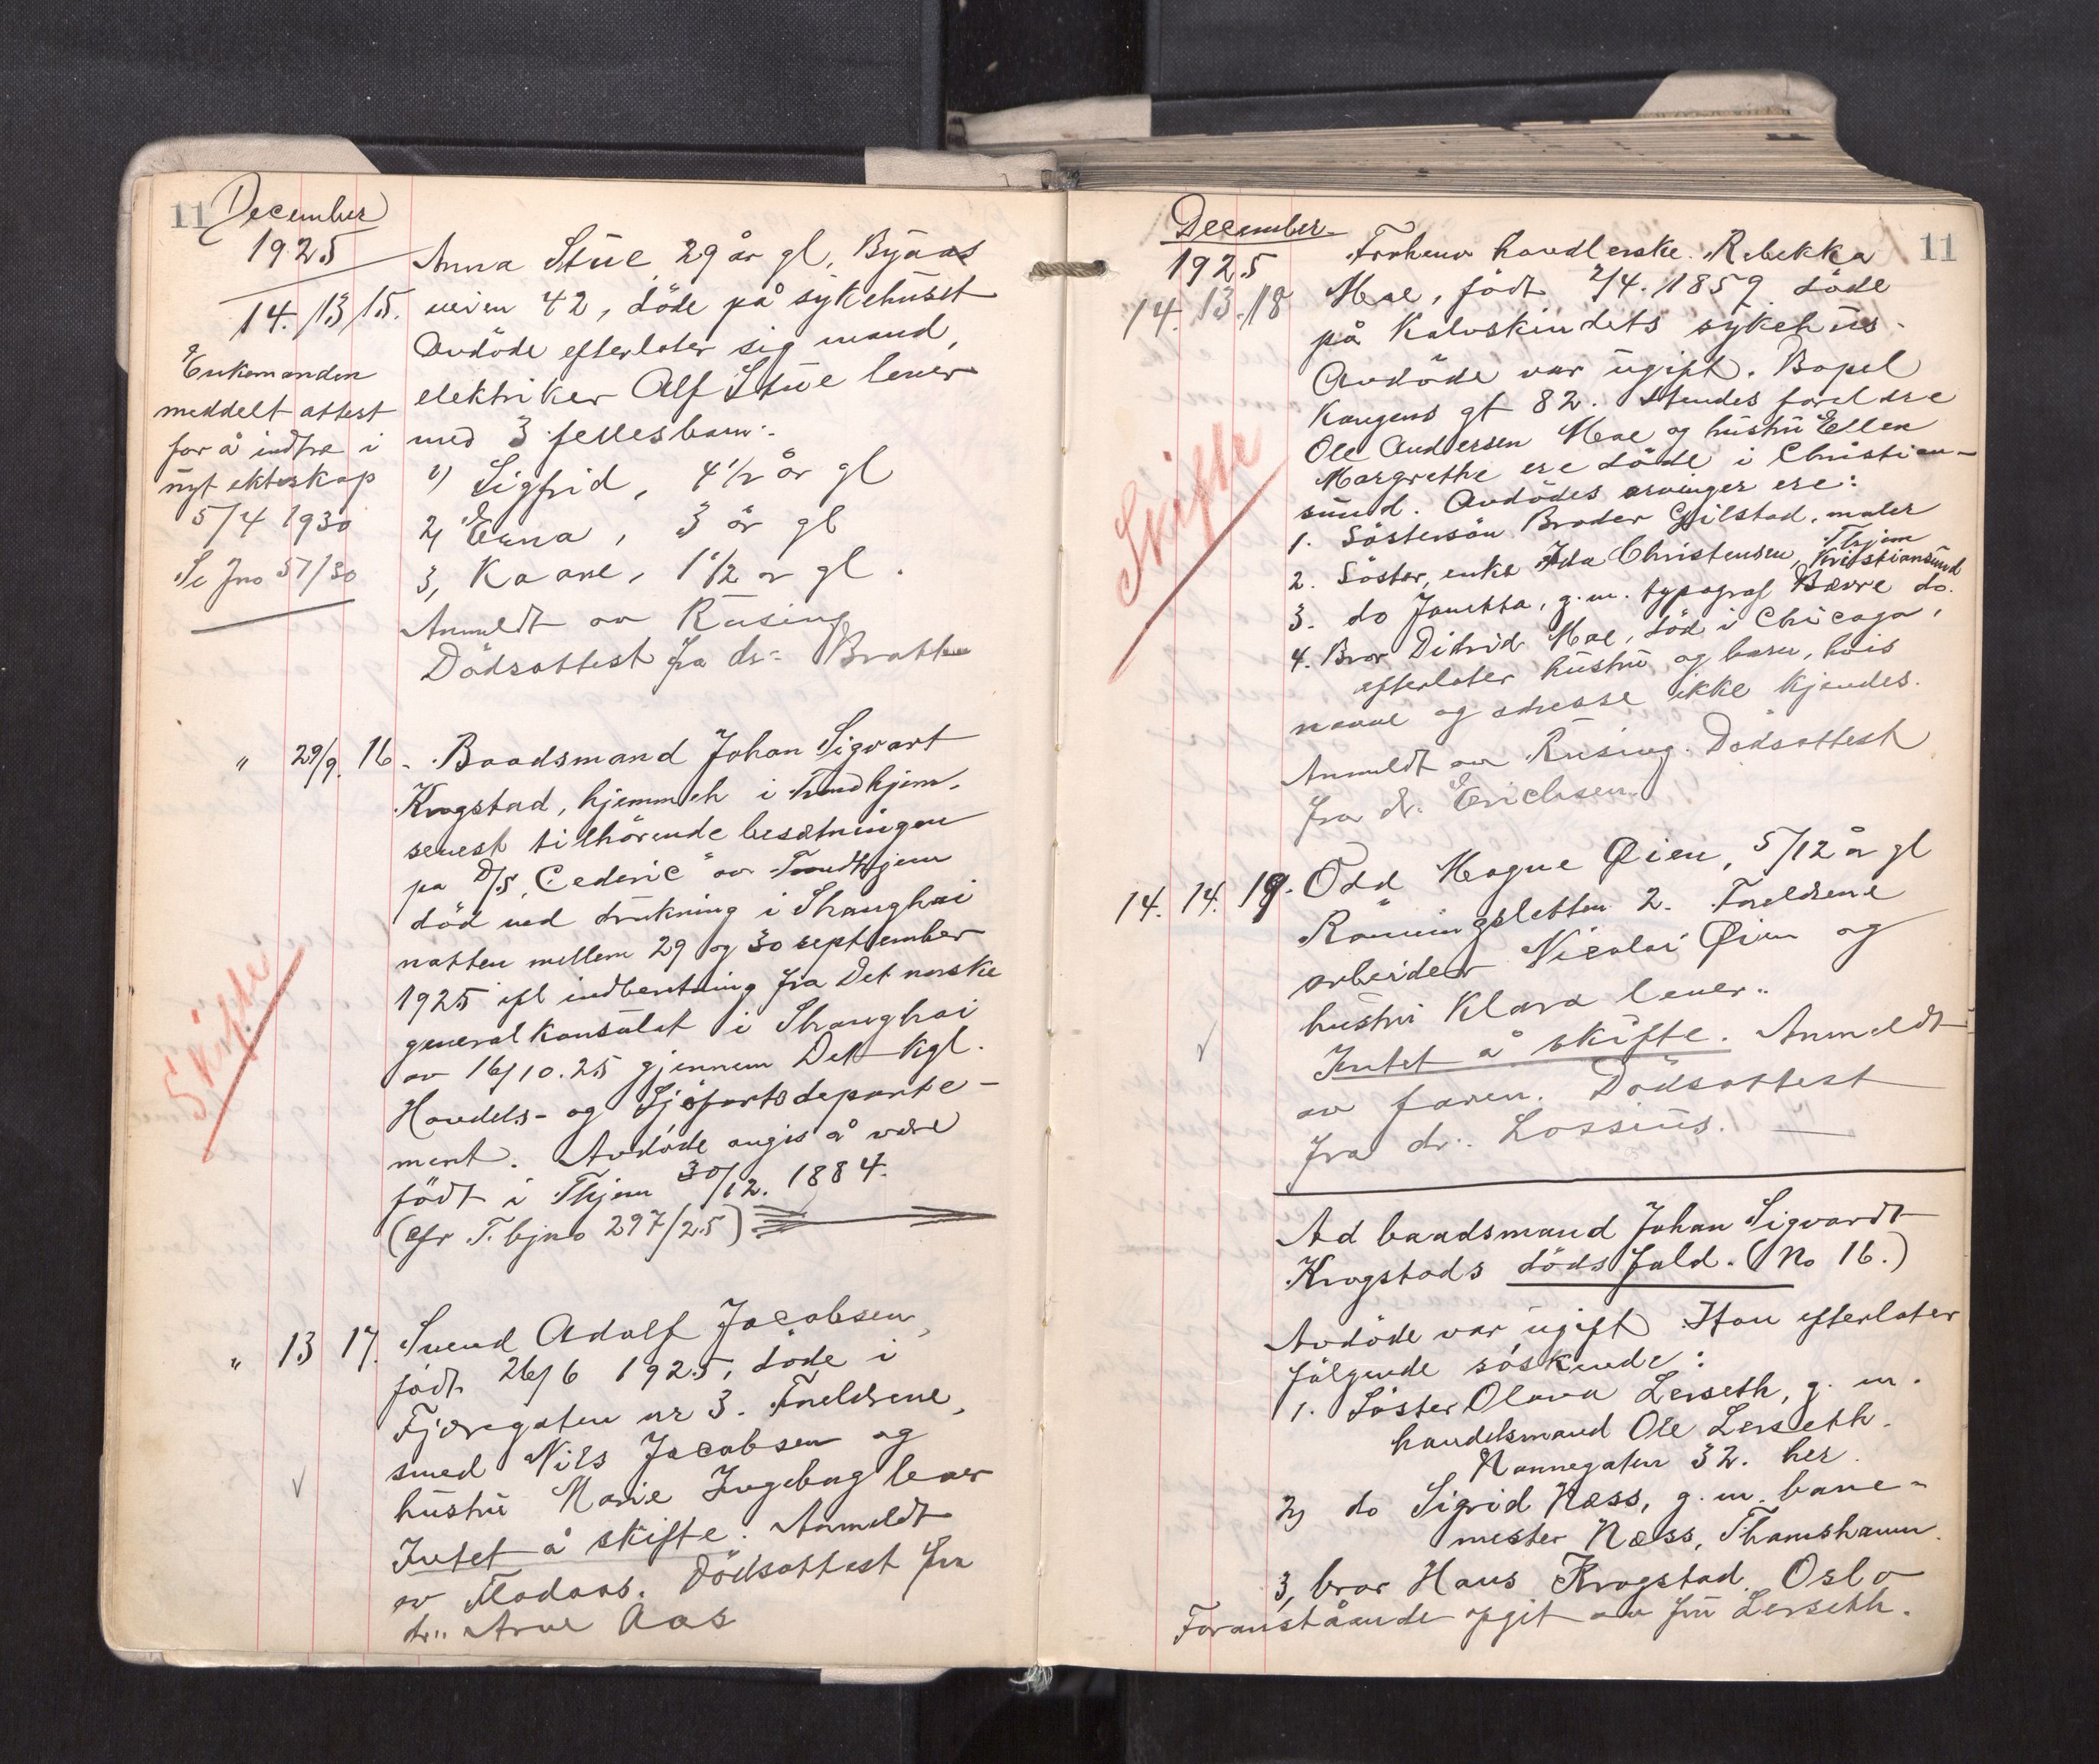 11 December
1925
14. /13 /15.
Enkemanden
meddelt attest
for å indtræ i
nyt ekteskap
5/4 1930
Se Jno 57/30
Anna Stüe 29 år gl, Byaas
veien 42, döde på sykehüset
Avdöde efterlater sig mand,
elektriker Alf Stüe lever
med 3 fellesbarn:
1) Sigfrid, 4 1/2 år gl
2, Erna, 3 år gl
3, Kaare, 1 1/2 år gl.
Anmeldt av Rüsing
Dödsattest fra dr: Bratt
" 29/9. 16. Baadsmand Johan Sigvart
Krogstad, hjemmeh i Trondhjem,
senest tilhörende besætningen
pa D/S "Cederic" av Trondhjem
död ved drukning i Shanghai
natten mellem 29 og 30 september
1925 ifl indberetning fra Det norske
generalkonsülat i Shanghai
av 16/10.25 gjennem Det kgl.
Handels- og Sjöfartsdeparte-
ment. Avdöde angis å være
födt i Thjem 30/12. 1884.
(cfr T. bjno 297/25)
Skifte
" 13 17. Svend Adolf Jacobsen,
födt 26/6 1925, döde i
Fjæregaten nr 3. Foreldrene,
smed Nils Jacobsen og
hüstrü Marie Ingeborg lever
Intet å skifte. Anmeldt
av Flodaas. Dödsattest fra
dr.. Arne Aas
December 11
1925
14. 13. 18
Frøken handlerske Rebekka
Moe, födt 2/4. 1859 döde
på Kalvskindets sykehüs.
Avdöde var ügift. Bopel
Kongens gt 82. Hendes foreldre
Ole Andersen Moe og hüstrü Ellen
Margrethe ere döde i Christian-
sünd. Avdödes arvinger ere:
1. Söstersön Broder Gjilstad, maler
Thjem
2. Söster, enke Ida Christensen, Kristiansünd
3. do Janetta, g.m. typograf Bævre do.
4. Bror Didrik Moe, död i Chicago,
efterlater hüstrü og barn, hvis
navne og adresse ikke kjendes.
Anmeldt av Rüsing. Dödsattest
fra dr. Erichsen
Skifte
14. 14. 19. Odd Magne Øien, 5/12 år gl
Ronningsletten 2. Foreldrene
arbeider Nicolai Øien og
hüstrü Klara lever..
Intet å skifte. Anmeldt
av faren. Dödsattest
fra dr.. Lossiüs.
Ad baadsmand Johan Sigvardt
Krogstads dödsfald. (No 16.)
Avdöde var ügift Han efterlater
fölgende söskende:
1. Söster Olava Lerseth, g. m.
handelsmand Ole Lerseth.
Nonnegaten 32. her.
2, do Sigrid Næss, g. m. bane-
mester Næss, Thamshavn.
3, bror Hans Krogstad. Oslo
Foranstående opgit av frü Lerseth.